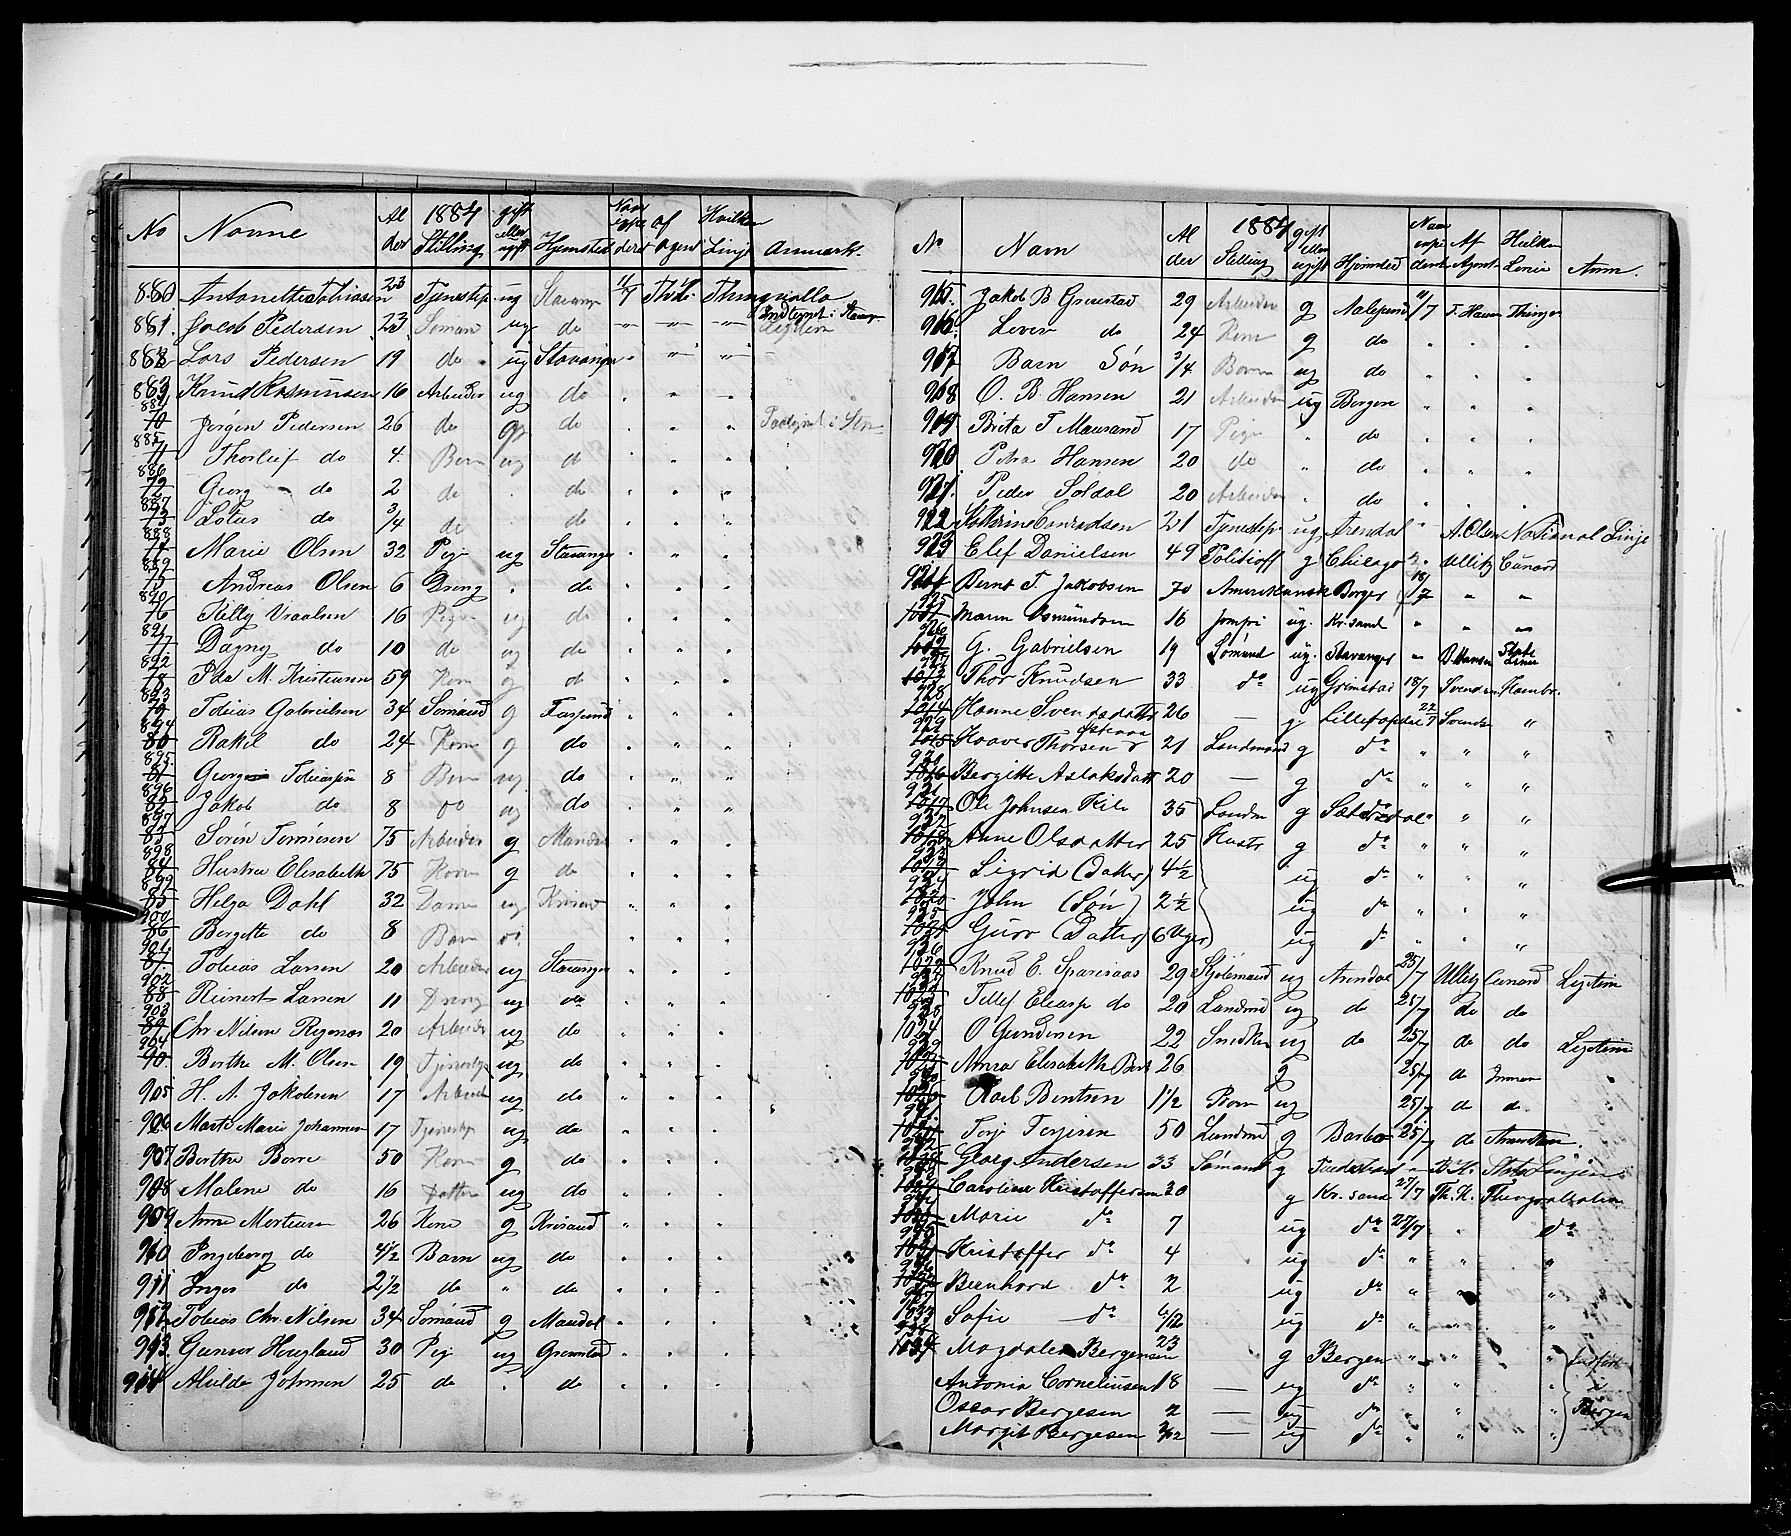 No Navne Al der 1884 Stilling gift eller ugift Hjemsted af Agent Hvilken Linje Anmærk.
880 Antonette Tobiasen 23 Tjenestep ug Stavanger 11/7 Thingvalla
881. Jacob Pedersen 23 Sømand ug do
882 Lars Pedersen 19 do ug Stavanger " " "
883 Knud Rasmussen 16 Arbeider ug do " " "
884 70 Jørgen Pedersen 26 do do " " "
885 71 Thorleif do 4 Barn ug do " " "
886 72 Georg do 2 do . do " " "
887 73 Lotus do 3/4 do . do " " "
888 74 Marie Olsen 32 Pige ug Stavanger " " "
889 75 Andreas Olsen 6 Dreng . do " " "
890 76 Tilly Vraalsen 16 Pige ug do " " "
891 77 Dagny do 10 do ug do " " "
892 78 Ida M. Kristensen 59 Kone g do " " "
893 79 Tobias Gabrielsen 34 Sømand g Farsund " " "
894 80 Rakel do 24 Kone g do " " "
895 81 George Tobiassen 8 Barn ug do " " "
896 82 Jakob do 8 do ug do " " "
897 83 Sørin Tønnesen 75 Arbeider g Mandal " " "
898 84 Hustru Elisabeth 75 Kone g do " " "
899 85 Helga Dahl 32 Dame ug Krisand " " "
900 86 Bergette do 8 Barn " " "
901 87 Tobias Larsen 20 Arbeider ug Stavanger " " "
902 88 Reinert Larsen 11 Dreng ug do " " "
903 89 Chr Nilsen Rygnæs 20 Arbeider ug do " " "
904 90 Berthe M. Olsen 19 Tjenestep ug do " " "
905 H. A. Jakobsen 17 Arbeider ug do " " "
906 Marte Marie Johannesen 17 Tjenestep ug do " " "
907 Berthe Borre 50 Kone g do " " "
908 Malene do 16 Datter ug do " " "
909 Anne Mortensen 26 Kone g Krisand " " "
910 Ingeborg do 4 1/2 Barn ug do " " "
911 Inger do 2 1/2 do " do " " "
912 Tobias Chr. Nilsen 34 Sømand g Mandal " " "
913. Gunvor Hougland 30 Pige ug Grimstad " " "
914 Hulda Johnsen 25 do . do " " "
No Navn Al der 1884 Stilling gift eller ugift Hjemsted Af Agent Hvilken Linie Anm.
915. Jakob B Graustad 29 Arbeider g Aalesund 11/7 F. Hansen Thingv
916. Lever do 24 Kone g do " " "
917 Barn Søn 3/4 Barn ug do " " "
918 O. B. Hansen 21 Arbeider ug Bergen " " "
919 Brita T Mausand 17 Pige " do " " "
920 Petra Hansen 20 do " do " " "
921. Peder Soldal 20 Arbeider " do " " "
922 Kathrine Conradsen 21 Tjenestep ug Arendal " A. Olsen National Linje
923 Elef Danielsen 49 Politioff g Chicago " Ullitz Cunard
924 Bernt T. Jakobsen 70 Amerikansk Borger 18/7 " "
925 Maren Osmundsen 16 Jomfru ug. Kr.sand " " "
926 G. Gabrielsen 19 Sømand ug. Stavanger " B. Hansen State Linie
927 1013 Thor Knudsen 33 do ug Grimstad 18/7 Svendsen Hambr.
928 1014 Hanne Svendsdatter 26 — g Lillesand 22/7 Svendsen "
929 1015 Haaver Thorsen 21 Landmand g do " " "
930 1016 Bergitte Aslaksdatt 20 — g do " " "
931 1017 Ole Johnsen Kile 35 Landm g Sætersdal " " "
932 1018 Anne Olsdatter 25 Hustr g do " " "
933 1019 Sigrid (Datter) 4 1/2 ug do " " "
934 1020 John (Søn) 2 1/2 ug do " " "
935 1021 Guro (Datter) 6 Uger ug do " " "
936 1022 Knud E. 29 ug Arendal 25/7 Ullitz Cunard Legitim
1023 Tellef do 20 Landmd ug do 25/7 do do
1024 O Gundersen 22 Snedker ug do 25/7 do do Legitim
1025 Anna Elisabeth Bent 26 g 25/7 do Inman
1026 Karl Bentsen 1 1/2 Barn ug 25/7 do do
Terje Terjesen 50 Landmd g Barbo 25/7 do
Georg Andersen 33 Sømand g Tvedestrand " State Linjen
Caroline Kristoffersen 30 g Kr.sand 27/7 Th. K. Thingvalla
Marie do 7 ug do 27/7 " do
1031 Kristoffer do 4 . ug do " " "
1032 Bernhard do 2 ug do " " "
1033 Sofie do 4/12 ug do " " "
1034 Magdalen Bergersen 23 g Bergen " " "
Antonia Corneliusen 18 — ug do " " " i
Oscar Bergesen 2 — ug do " " " Bergen
Margit Bergesen 3/12 — ug do " " "